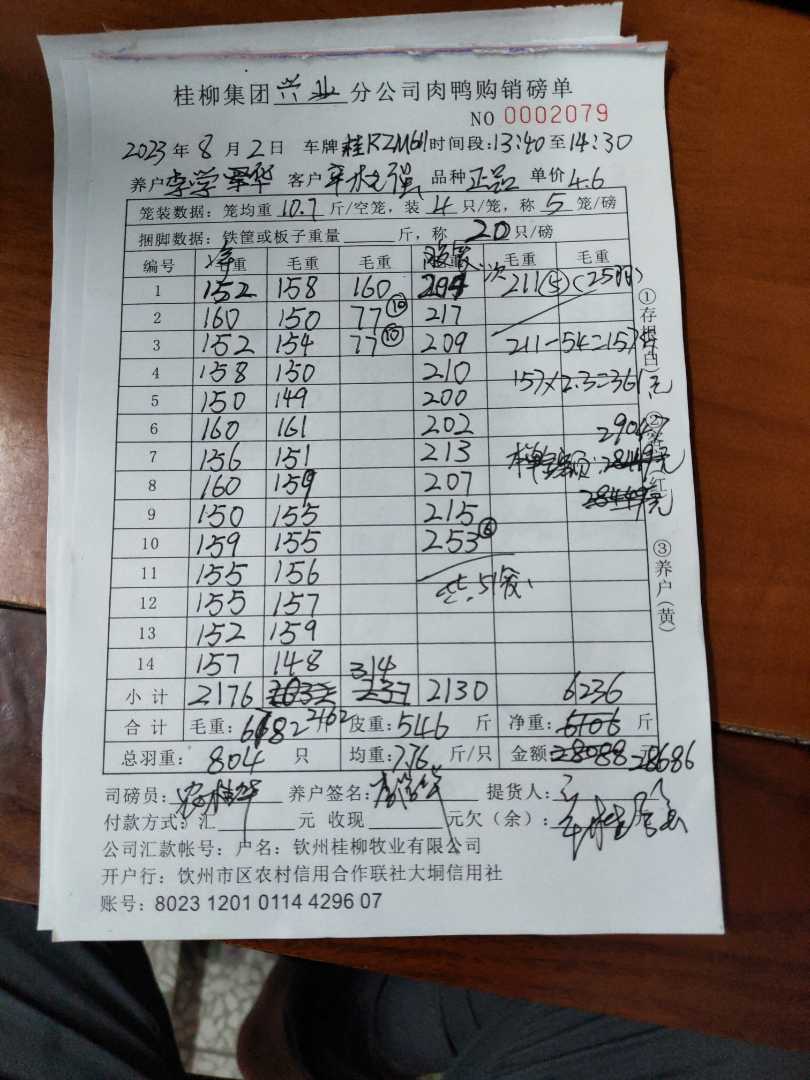 桂柳集团兴业分公司肉鸭购销磅单
NO 0002079
2023年8月2日 车牌桂RZM611时间段:13:40至14:30
养户李学 华 客户 强 品种正品 单价4.6
笼装数据:笼均重10.7斤/空笼,装4只/笼,称5笼/磅
捆脚数据:铁筐或板子重量 斤,称20只/磅
编号 毛重 毛重 毛重 毛重 毛重
1 152 158 160 204 次 211⑤(25羽)
2 160 150 77⑩ 217
3 152 154 77⑩ 209 211-54=157斤
4 158 150 210 157×2.3=361元
5 150 149 200
6 160 161 202 29047
7 156 151 213 本单金额:28449元
8 160 159 207 28449元
9 150 155 215
10 159 155 253⑥
11 155 156 共51笼
12 155 157
13 152 159
14 157 148 314
小计 2176 2130 6236
合计 毛重:6782 2162 皮重:546斤 净重:6106斤
总羽重:804只 均重:7.76斤/只 金额28088元 28686
司磅员: 养户签名: 提货人:
付款方式:汇 元 收现 元欠(余):
公司汇款帐号:户名:钦州桂柳牧业有限公司
开户行:钦州市区农村信用合作联社大垌信用社
账号:8023 1201 0114 4296 07
①存根(白)
②客户(红)
③养户(黄)